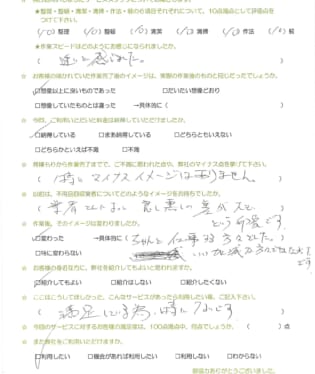 ★整理・整頓・清潔・清掃・作法・躾の6項目それぞれについて、10点満点として評価点をつけて下さい。
(10) 整理 (10) 整頓 (10) 清潔 (10) 清掃 (10) 作法 (10) 躾
★作業スピードはどのように感じになられましたか。
( 速いと感じました。 )
☆ お客様の描かれていた作業完了後のイメージは、実際の作業後のものと同じだったでしょうか。
☑想像以上に良いものであった □だいたい想像どおり
□想像していたものとは違った →具体に( )
☆ 今回、ご利用いただいた料金は納得していただけましたか。
☑納得している □まあ納得している □どちらともいえない
□どちらかといえば不満 □不満
☆ 見積もりから作業完了までで、ご不満に思われた点や、弊社のマイナス点を挙げて下さい。
( 特にマイナスイメージはありません。 )
☆ 以前は、不用品回収業者についてどのようなイメージをお持ちでしたか。
( 業者さんによって良し悪しの差が大きい
という印象です。 )
☆ 作業後、そのイメージは変わりましたか。
☑変わった →具体的に( ちゃんと仕事する方々でした。
□特に変わらない
☆ お客様の身近な方に、弊社を紹介してもよいと思われますか。
☑紹介してもよい □紹介はしない □紹介したくない
☆ ここはこうしてほしかった、こんなサービスがあったら利用したい等、ご記入下さい。
( 満足している為、特にないです )
☆ 今回のサービスに対するお客様の満足度は、100点満点中、何点でしょうか。 ( )点
☆ また弊社をご利用いただけますか。
☑利用したい □機会があれば利用したい □利用しない □わからない
御協力ありがとうございました。